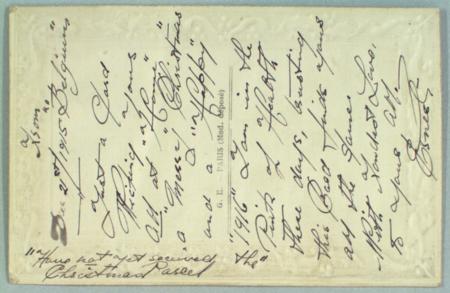 From
Dec 21st/1915 "Belgium"
Just a Card
Wishing yous
All at "Home"
a "Merry" "Christmas"
and a "Happy"
G. E. PARIS (Mod. déposé)
"1916" I am in the
the" Pink of Health
these days, trusting
this Card finds yous
all the same.
With Fondest Love,
to yous all.
Ernest
"Have not yet received
Christmas Parcel